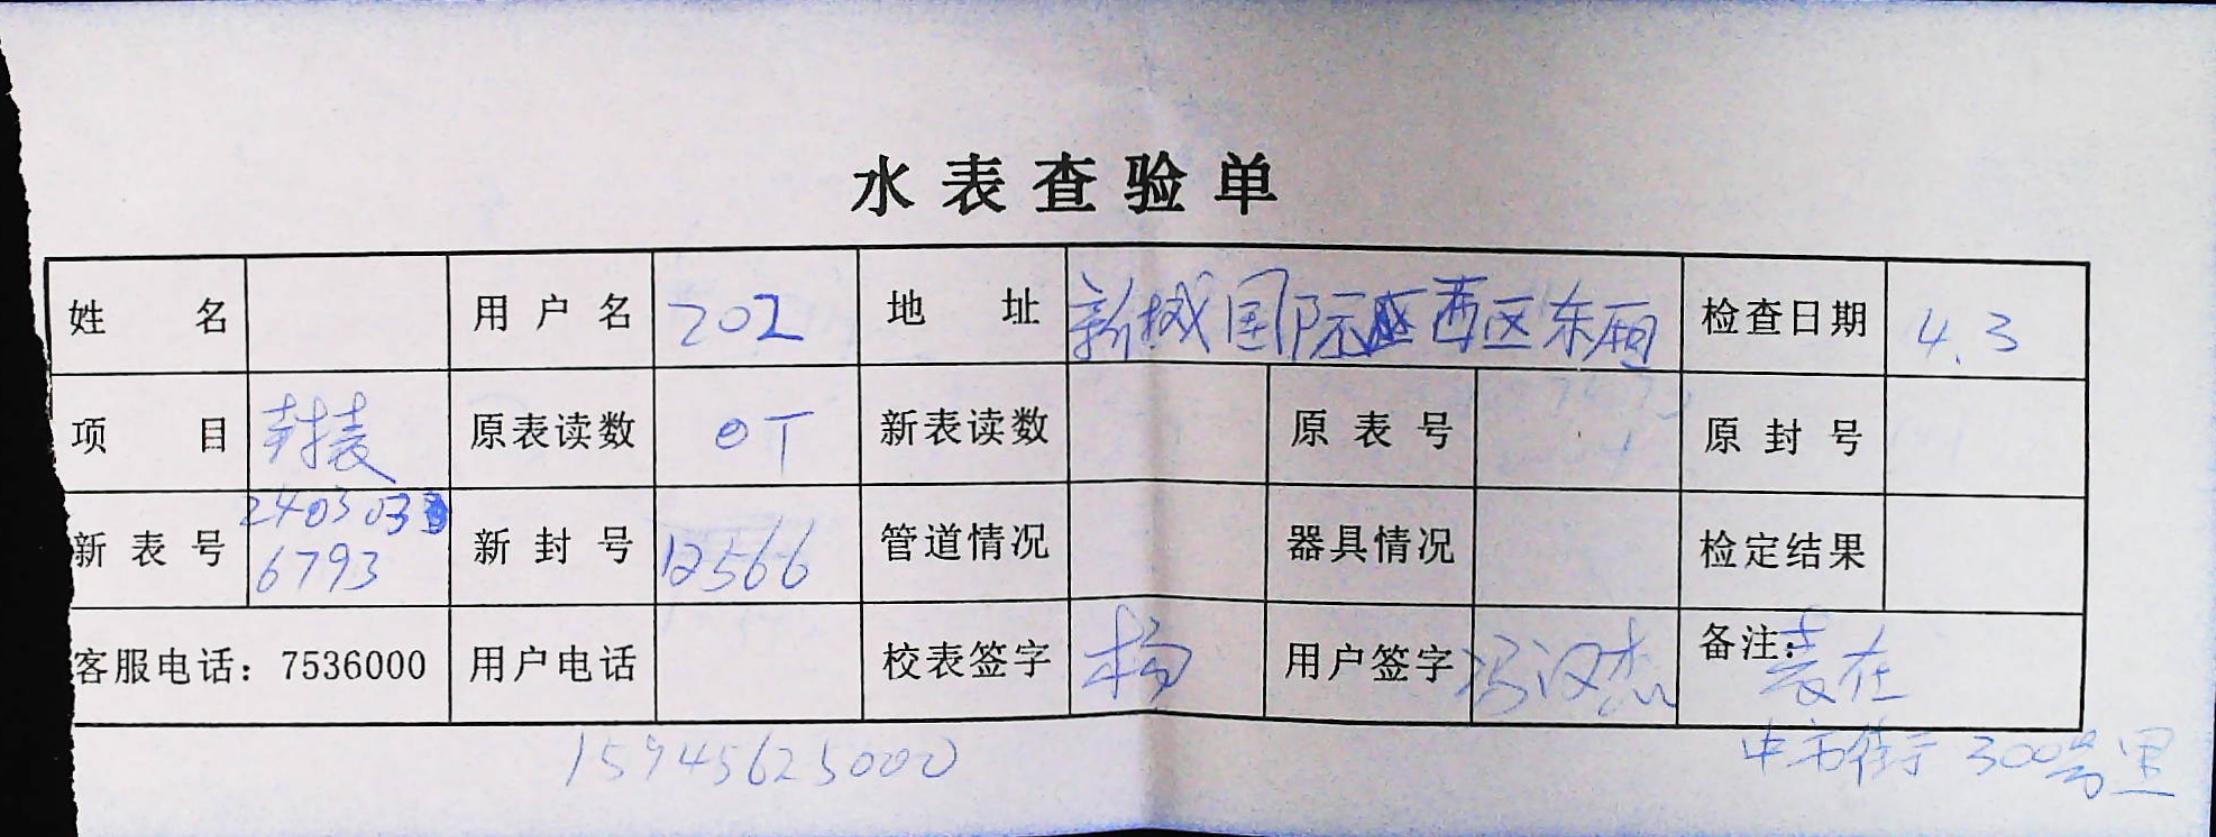 水表查验单
姓名 用户名 202 地址 新城国际西区东厢 检查日期 4.3
项目 封表 原表读数 0T 新表读数 原表号 原封号
新表号 2403033 6793 新封号 12566 管道情况 器具情况 检定结果
客服电话：7536000 用户电话 校表签字 杨 用户签字 冯汉杰 备注：表在
15945625000 中市街于300号里